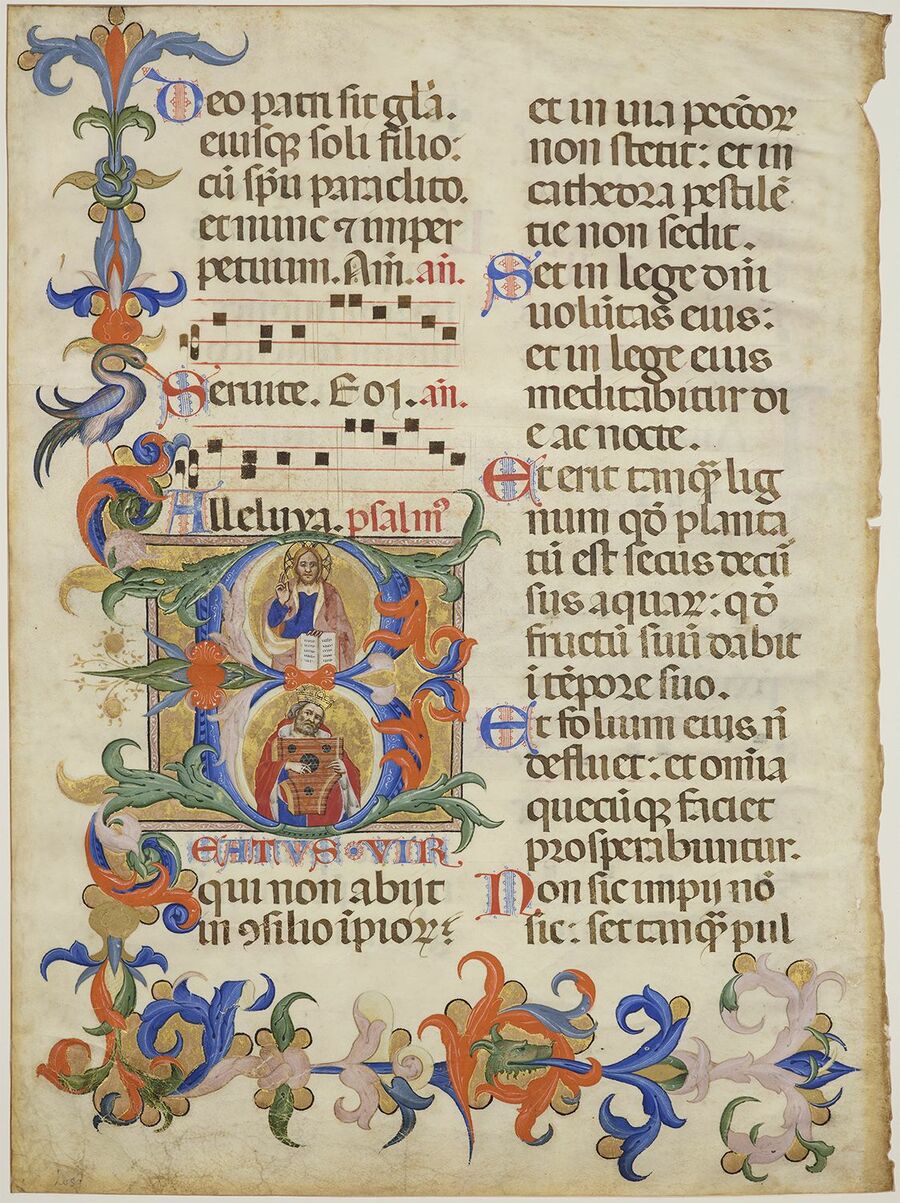 Deo patri sit gl̃a.
eiusqꝫ soli filio:
cũ sp̃u paraclito.
et nunc ⁊ in per
petuum. Am̃. añ.
Seruite. Eoꝫ. añ.
Alleluya. psalmꝰ
BEATVS VIR
qui non abijt
in ꝯsilio ĩpioꝝ:
et in uia pecc̃oꝝ
non stetit: et in
cathedra pestilẽ
tie non sedit.
Set in lege dñi
uolũtas eius:
et in lege eius
meditabitur di
e ac nocte.
Et erit tanq̃ lig
num qđ planta
tũ est secus decũ
sus aquaꝝ: qđ
fructũ suũ dabit
ĩ tẽpore suo.
Et folium eius ñ
defluet: et om̃ia
quecũqꝫ faciet
prosperabuntur.
Non sic impij nõ
sic: set tanq̃ pul